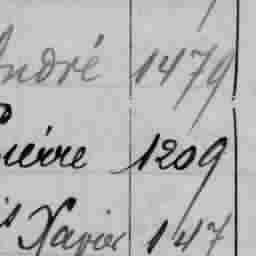 André 1479
Pierre 1209
Xavier 147